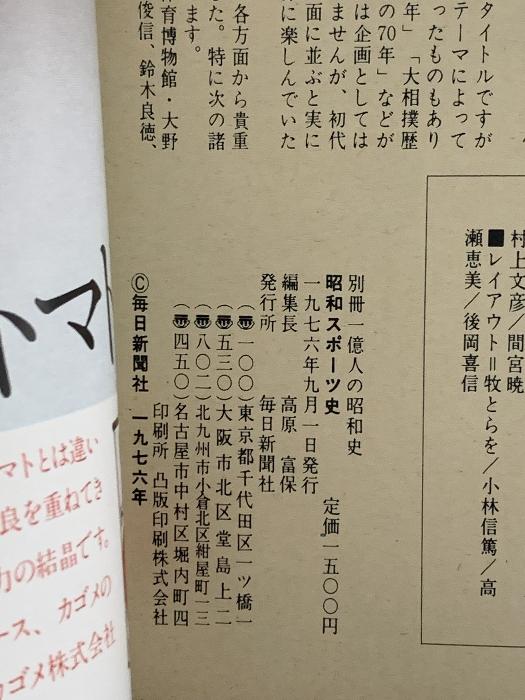 村上文彦／間宮暁
■レイアウト＝牧とらを／小林信篤／高
瀬恵美／後岡喜信
タイトルですが
テーマによって
ったものもあり
年」「大相撲歴
の70年」などが
は企画としては
ませんが、初代
面に並ぶと実に
に楽しんでいた
各方面から貴重
した。特に次の諸
ます。
体育博物館・大野
俊信、鈴木良徳、
別冊一億人の昭和史
昭和スポーツ史
定価一五〇〇円
一九七六年九月一日発行
編集長 高原 富保
発行所 毎日新聞社
（〒一〇〇）東京都千代田区一ツ橋一
（〒五三〇）大阪市北区堂島上二
（〒八〇二）北九州市小倉北区紺屋町一三
（〒四五〇）名古屋市中村区堀内町四
印刷所 凸版印刷株式会社
Ⓒ毎日新聞社 一九七六年
トマト
マトとは違い
良を重ねてき
力の結晶です。
ース、カゴメの
カゴメ株式会社